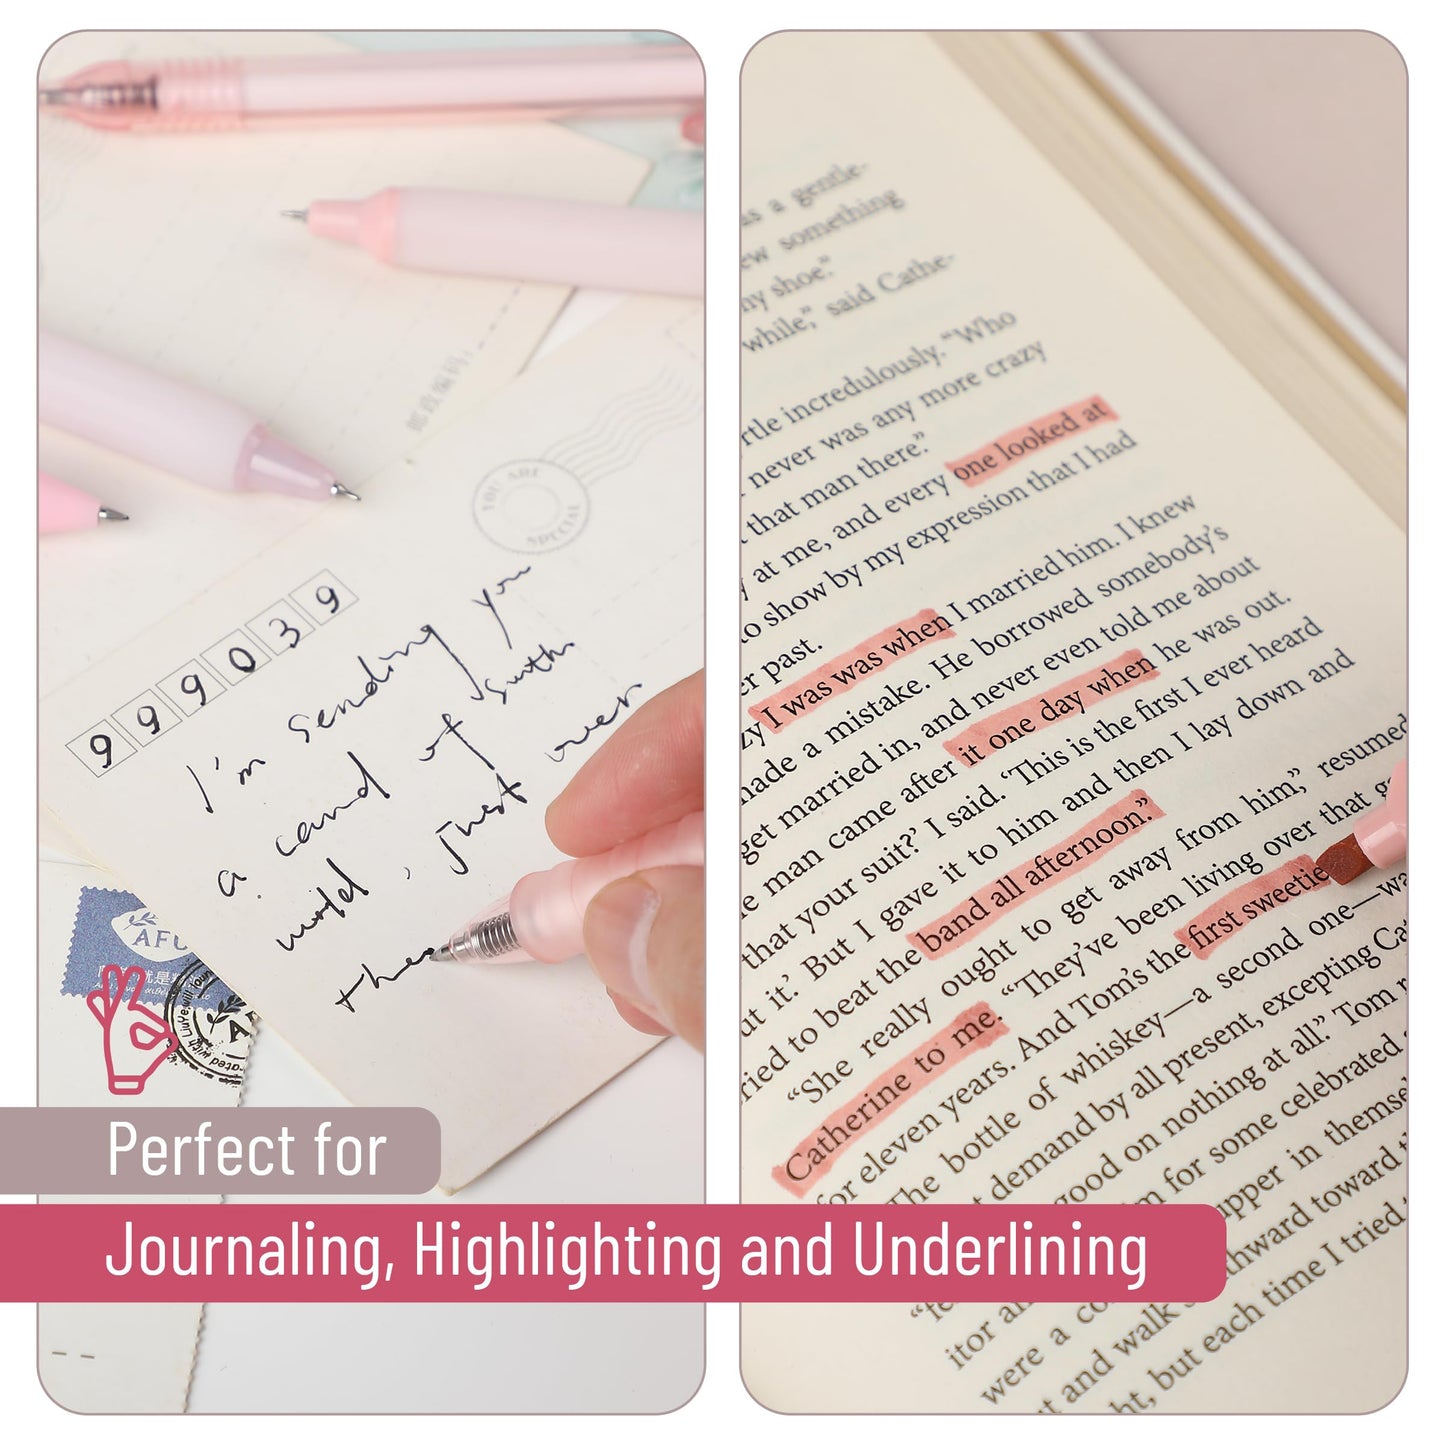 邮政编码:
YOU ARE
SPECIAL
999039
I'm sending you
a card of
world, just over
AFU
Perfect for
Journaling, Highlighting and Underlining
as a gentle-
something
my shoe."
while," said Cathe-
incredulously. "Who
never was any more crazy
that man there."
at me, and every one looked at
to show by my expression that I had
past.
I was was when I married him. I knew
made a mistake. He borrowed somebody's
get married in, and never even told me about
man came after it one day when he was out.
that your suit?' I said. 'This is the first I ever heard
it.' But I gave it to him and then I lay down and
to beat the band all afternoon."
"She really ought to get away from him," resumed
Catherine to me. "They've been living over that
for eleven years. And Tom's the first sweetie
The bottle of whiskey—a second one—
demand by all present, excepting
good on nothing at all." Tom
for some celebrated
upper in
toward
were a
and walk
but each time I tried